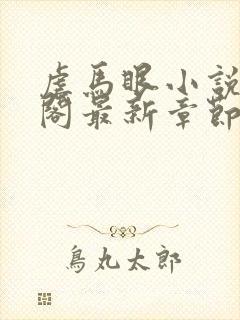 虐馬眼小說
閣最新章節
鳥丸太郎